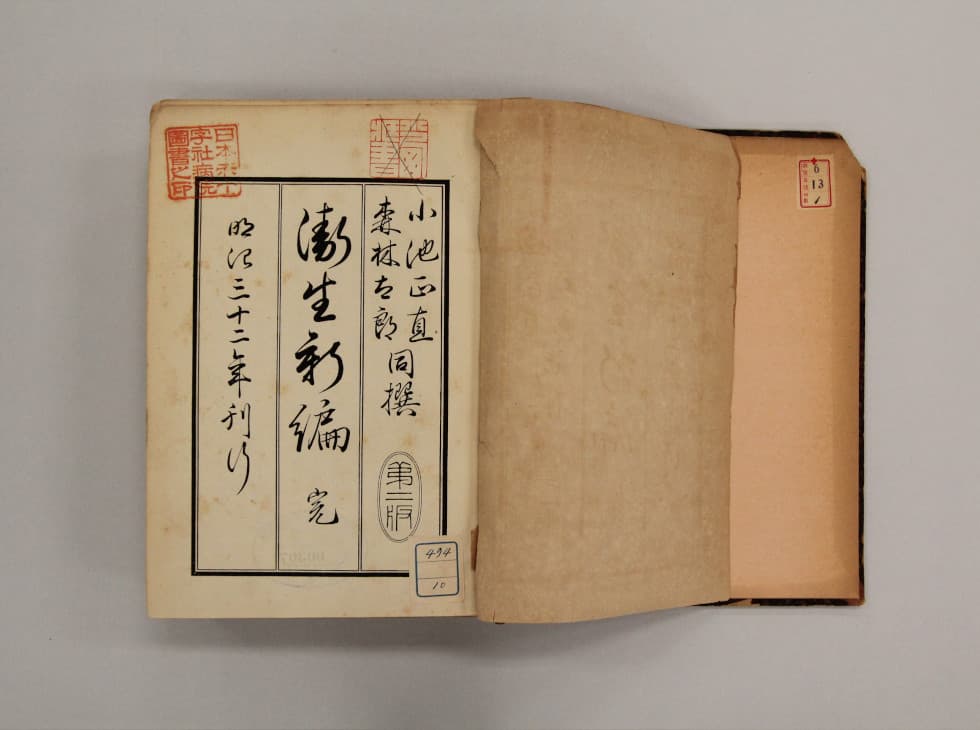 小池正直
森林太郎
同撰
第二版
衞生新編 完
明治三十二年刊行
日本赤十
字社病院
圖書之印
494
10
6
13
1